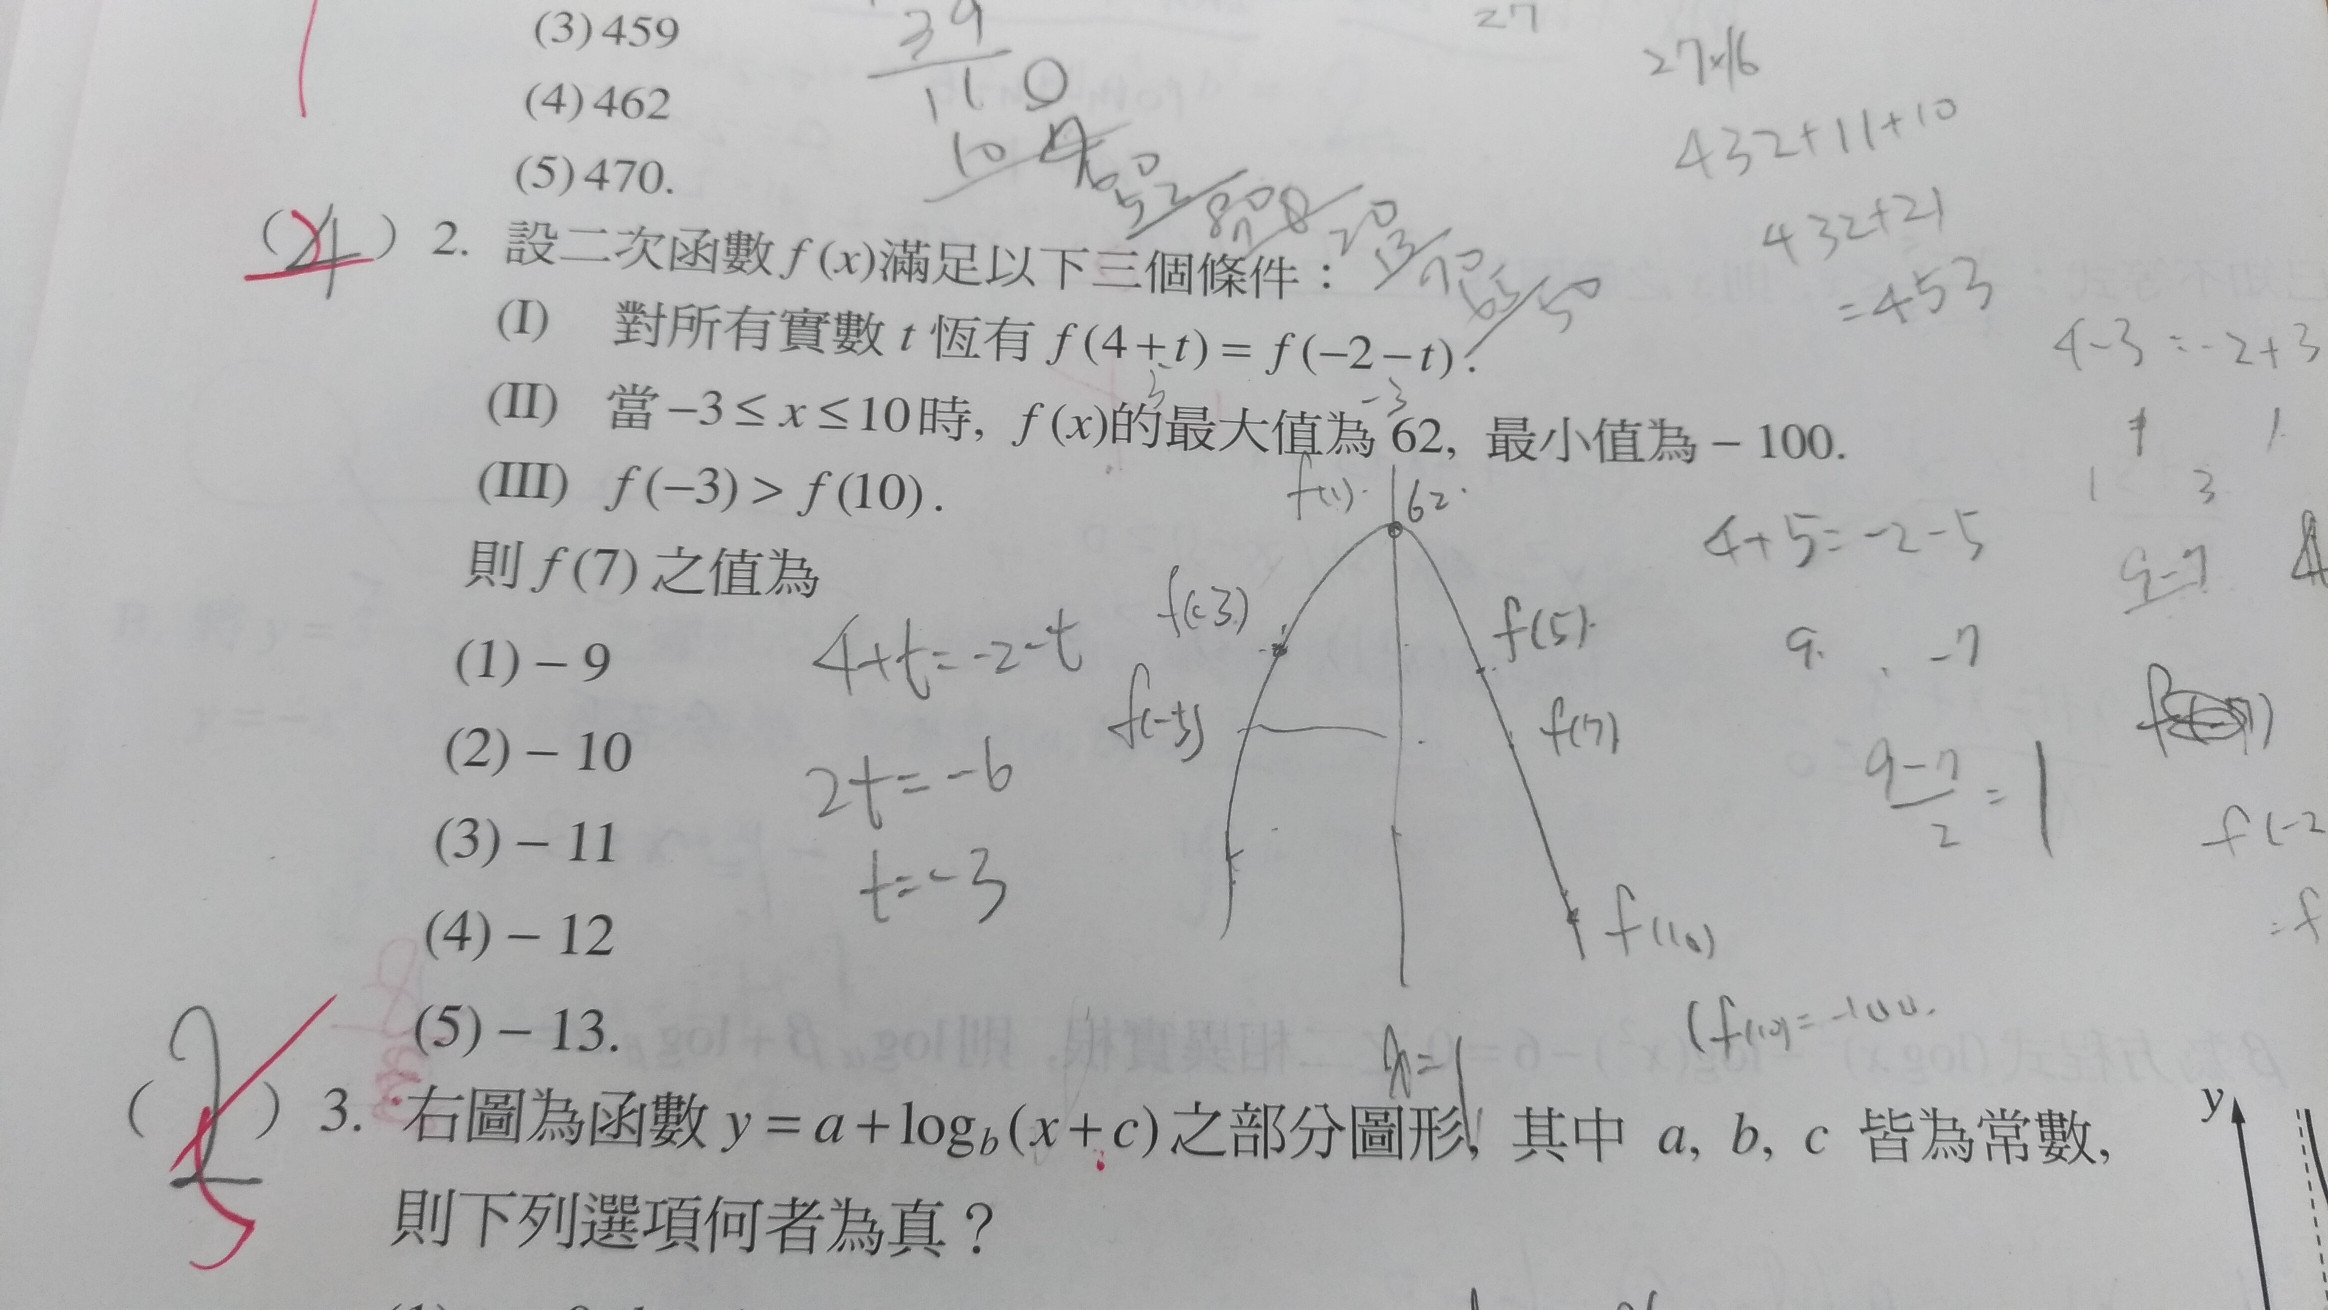 (3) 459
(4) 462
(5) 470.
39
110
104
60
52
80
20
13
70
65
50
27
27×16
432+11+10
432+21
=453
(4) 2. 設二次函數 f(x)滿足以下三個條件：
(I) 對所有實數 t 恆有 f(4+t) = f(−2−t).
(II) 當 −3 ≤ x ≤ 10 時, f(x)的最大值為 62, 最小值為 − 100.
(III) f(−3) > f(10).
則 f(7) 之值為
(1) − 9
(2) − 10
(3) − 11
(4) − 12
(5) − 13.
4+t=-2-t
2t=-6
t=-3
f(1)
62
f(-3)
f(5)
f(7)
f(10)
(f(10)=-100.
x=1
4-3=-2+3
4+5=-2-5
9 -7
9-7
9-7/2=1
f(-2
=f
(2) 3. 右圖為函數 y = a + log_b(x + c) 之部分圖形, 其中 a, b, c 皆為常數,
則下列選項何者為真？
y